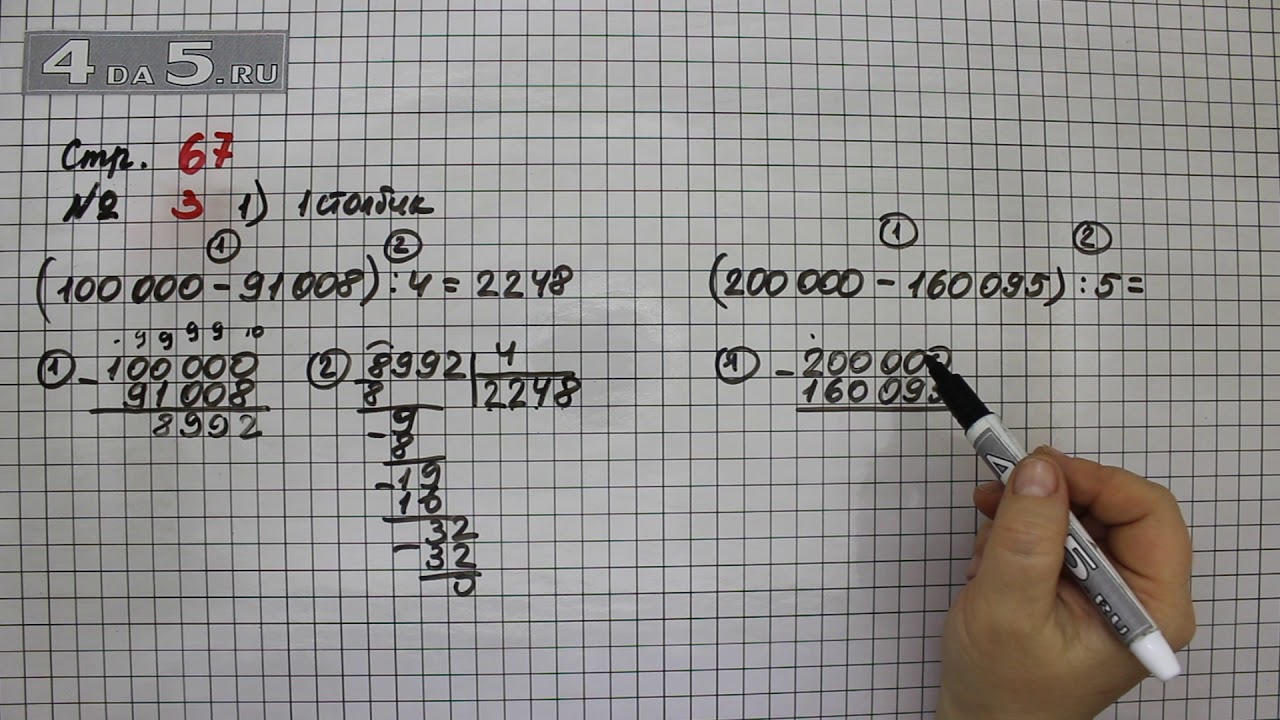 4DA5.RU
Стр. 67
№ 3 1) 1 столбик
1 2
(100 000 - 91 008) : 4 = 2248
1 2
(200 000 - 160 095) : 5 =
. 9 9 9 9 10
1 - 100 000
91 008
8992
2 - 8992 4
8 2248
9
- 8
- 19
16
32
- 32
0
1 - 200 000
160 095
4 5.RU